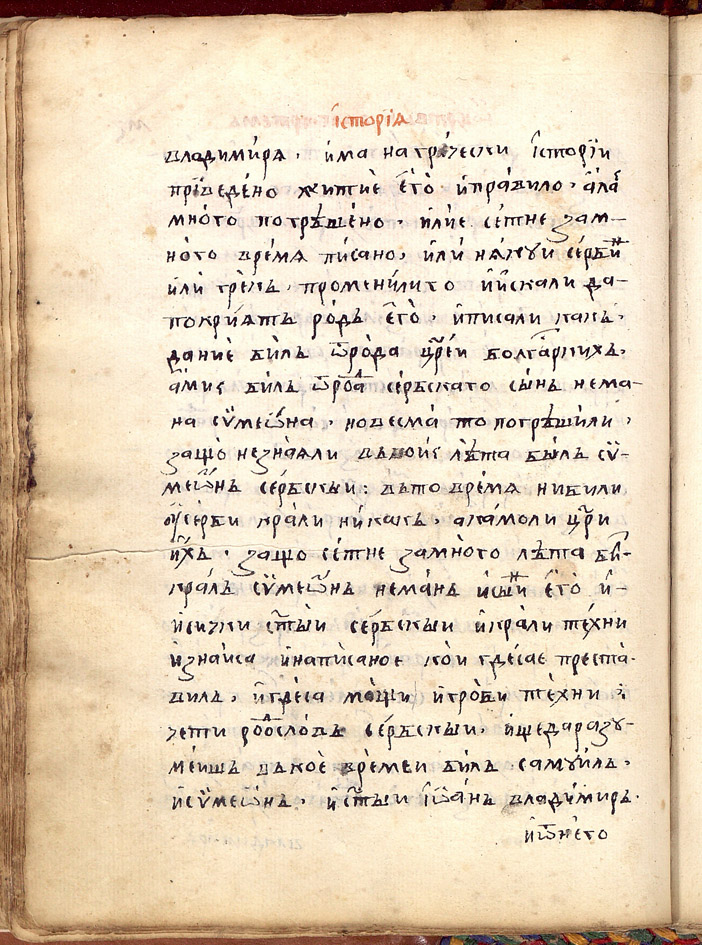 їсторїа
владими́ра · и҆ма на гре́чески їсторїи
при́ведено житїе є҆го̀ и҆правило · а҆ла̀
мно́го погрѣ́шено · и҆лие сетне зам-
но́го време писано, и҆лѝ нꙗ́куи се́рбїи
и҆лѝ гре́къ · променили го и҆и҆скали да-
покри́ꙗтъ ро́дъ є҆го̀ · и҆писали какъ·
да́ние би́лъ ѿро́да цр҃е́й болга́рскихъ·
а҆ми є би́лъ ѿро́да се́рбскаго сы́нъ нема-
на сѷмеѡ́на · но весма̀ то погрѣ́шили ·
защо̀ не зна́ꙗли въ вои́ лѣ́та бы́лъ сѷ-
меѡ́нъ се́рбскыи : въто време ни били
оу҆ се́рби крали ни́какъ · а камоли цр҃и
и҆́хъ · защо̀ се́тне замно́го лѣ́та бы̀
кра́лъ сѷмеѡ́нъ нема́нъ и҆ сы́нїи є҆го̀ и҆-
и҆сички ст҃ы́и се́рбскыи и҆ крали те́хни
и҆зна́иса и҆написаное ко́и где са е преста-
вилъ · и҆ где са мо́щи и҆ гро́би те́хни :
чети родосло́въ се́рбскыи · и҆ще да разу-
ме́ишъ въ коѐ време и би́лъ самуи́лъ ·
и҆ сѷмеѡ́нъ · и҆ ст҃ы́и їѡа́нъ влади́миръ ·
и҆ ѿне́го